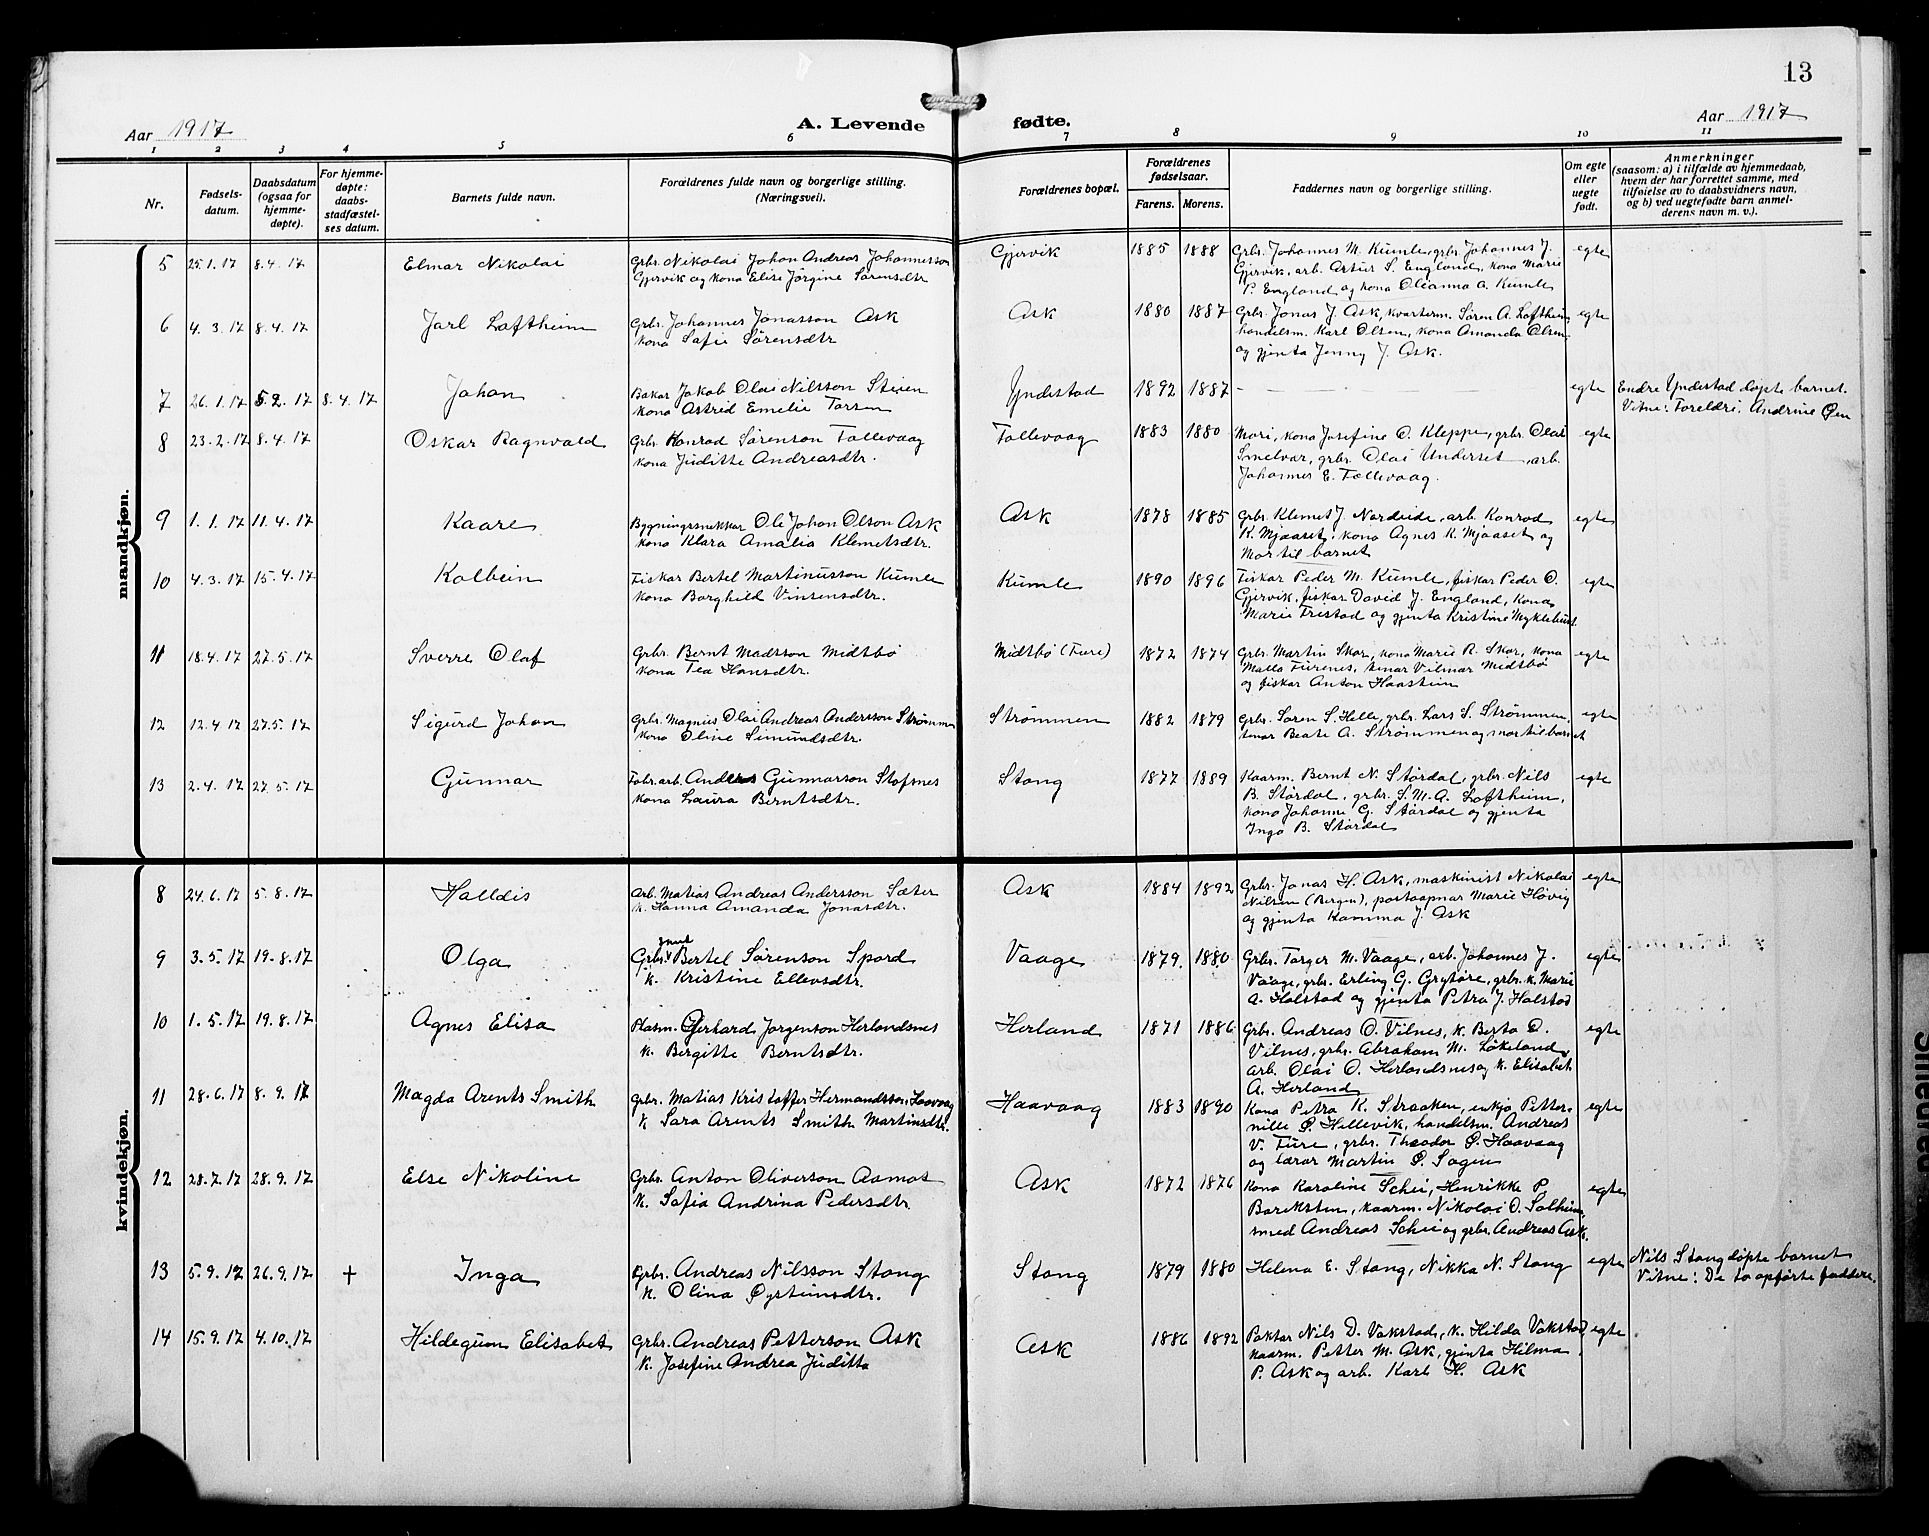 13
Aar 1917
A. Levende
fødte.
Aar 1917
1 2 3 4 5 6 7 8 9 10 11
Nr.
Fødsels-
datum.
Daabsdatum
(ogsaa for
hjemme-
døpte).
For hjemme-
døpte:
daabs-
stadfæstel-
ses datum.
Barnets fulde navn.
Forældrenes fulde navn og borgerlige stilling.
(Næringsvei).
Forældrenes bopæl.
Forældrenes
fødselsaar.
Farens. Morens.
Faddernes navn og borgerlige stilling.
Om egte
eller
uegte
født.
Anmerkninger
(saasom: a) i tilfælde av hjemmedaab,
hvem der har forrettet samme, med
tilføielse av to daabsvidners navn,
og b) ved uegtefødte barn anmel-
derens navn m. v.).
mandkjøn.
5 25.1.17 8.4.17 Elmar Nikolai
Grbr. Nikolai Johan Andreas Johannesson
Gjervik og kona Elise Jørgine Sørensdtr
Gjervik 1885 1888
Grbr. Johannes M. Kumle, grbr. Johannes J.
Gjervik, arb. Artur S. England, kona Marie
P. England og kona Olianna A. Kumle
egte
6 4.3.17 8.4.17 Jarl Loftheim
Grbr. Johannes Jonasson Ask
kona Safie Sørensdtr
Ask 1880 1887
Grbr. Jonas J. Ask, kvarterm. Søren A. Loftheim,
handelsm. Karl Olsen, kona Amanda Olsen
og gjenta Jenny J. Ask.
egte
7 26.1.17 5.2.17 8.4.17 Johan
Bakar Jakob Olai Nilsson Steien
kona Astrid Emelie Torsen
Yndestad 1892 1887 —
egte
Endre Yndestad døpte barnet.
Vitne: Foreldri. Andrine Øen
8 23.2.17 8.4.17 Oskar Ragnvald
Grbr. Konrad Sørenson Follevaag
kona Juditte Andreasdtr.
Follevaag 1883 1880
Mori, kona Josefine O. Kleppe, grbr. Olai
Smelvær, grbr. Olai Underset, arb.
Johannes E. Follevaag.
egte
9 1.1.17 11.4.17 Kaare
Bygningssnekkar Ole Johan Olson Ask
kona Klara Amalia Klemetsdtr.
Ask 1878 1885
Grbr. Klemet J. Nordeide, arb. Konrad
K. Mjaaset, kona Agnes K. Mjaaset og
Mor til barnet
egte
10 4.3.17 15.4.17 Kolbein
Fiskar Bertel Martinusson Kumle
kona Borghild Vinsensdtr.
Kumle 1890 1896
Fiskar Peder M. Kumle, fiskar Peder O.
Gjervik, fiskar David J. England, kona
Marie Fristad og gjenta Kristine Myklebust.
egte
11 18.4.17 27.5.17 Sverre Olaf
Grbr. Bernt Madsson Midtbø
kona Tea Hansdtr.
Midtbø (Fure) 1872 1874
Grbr. Martin Skor, kona Marie R. Skor, kona
Malla Furenes, tenar Vilmar Midtbø
og fiskar Anton Haastein
egte
12 12.4.17 27.5.17 Sigurd Johan
Grbr. Magnus Olai Andreas Andersson Strømmen
kona Oline Simundsdtr.
Strømmen 1882 1879
Grbr. Søren S. Helle, grbr. Lars S. Strømmen,
tenar Beate A. Strømmen og mor til barnet
egte
13 2.4.17 27.5.17 Gunnar
Fabr.arb. Anders Gunnarson Stofnes
kona Laura Berntsdtr.
Stong 1877 1889
Kaarm. Bernt N. Størdal, grbr. Nils
B. Størdal, grbr. S. M. A. Loftheim,
kona Johanne G. Størdal og gjenta
Inga B. Størdal
egte
kvindekjøn.
8 24.6.17 5.8.17 Halldis
Arb. Matias Andreas Andersson Sæter
k. Hanna Amanda Jonasdtr.
Ask 1884 1892
Grbr. Jonas H. Ask, maskinist Nikolai
Nilsen (Bergen), postopnar Marie Høvig
og gjenta Kamma J. Ask
egte
9 3.5.17 19.8.17 Olga
Grbr. Bertel Sørenson Spord
k. Kristine Ellevsdtr.
Vaage 1879. 1880
Grbr. Torger M. Vaage, arb. Johannes J.
Vaage, grbr. Erling G. Grytøre, grbr. k. Marie
A. Holstad og gjenta Petra J. Holstad
egte
10 1.5.17 19.8.17 Agnes Elisa
Plasm. Gerhard Jørgenson Herlandsnes
k. Bergitte Berntsdtr.
Herland 1871 1886
Grbr. Andreas O. Vilnes, k. Berta O.
Vilnes, grbr. Abraham M. Løkeland,
arb. Olai O. Herlandsnes og k. Elisabet
A. Herland
egte
11 28.6.17 8.9.17 Magda Arents Smith
Grbr. Matias Kristoffer Hermandsson Haavaag
k Sara Arents Smith Martinsdtr.
Haavaag 1883 1890
Kona Petra K. Straaken, enkja Petter-
nille P. Hellevik, handelsm. Andreas
V. Fure, grbr. Theodor P. Haavaag
og lærar Martin P. Sagen
egte
12 28.7.17 28.9.17 Else Nikoline
Grbr. Anton Oliverson Aamot
k. Safia Andrina Pedersdtr.
Ask 1872 1876
Kona Karoline Schei, Henrikke P.
Bareksten, kaarm. Nikolai O. Solheim,
smed Andreas Schei og grbr. Andreas Ask.
egte
13 5.9.17 26.9.17 + Inga
Grbr. Andreas Nilsson Stong
k. Olina Øysteinsdtr.
Stong 1879 1880
Helena E. Stong, Nikka N. Stong
egte
Nils Stong døpte barnet
Vitne: De to opførte faddere.
14 15.9.17 4.10.17 Hildegunn Elisabet
Grbr. Andreas Petterson Ask
k. Josefine Andrea Juditta
Ask 1886 1892
Paktar Nils D. Vakstad, k. Hilda Vakstad,
kaarm. Petter M. Ask, gjenta Hilma
P. Ask og arb. Karl H. Ask
egte